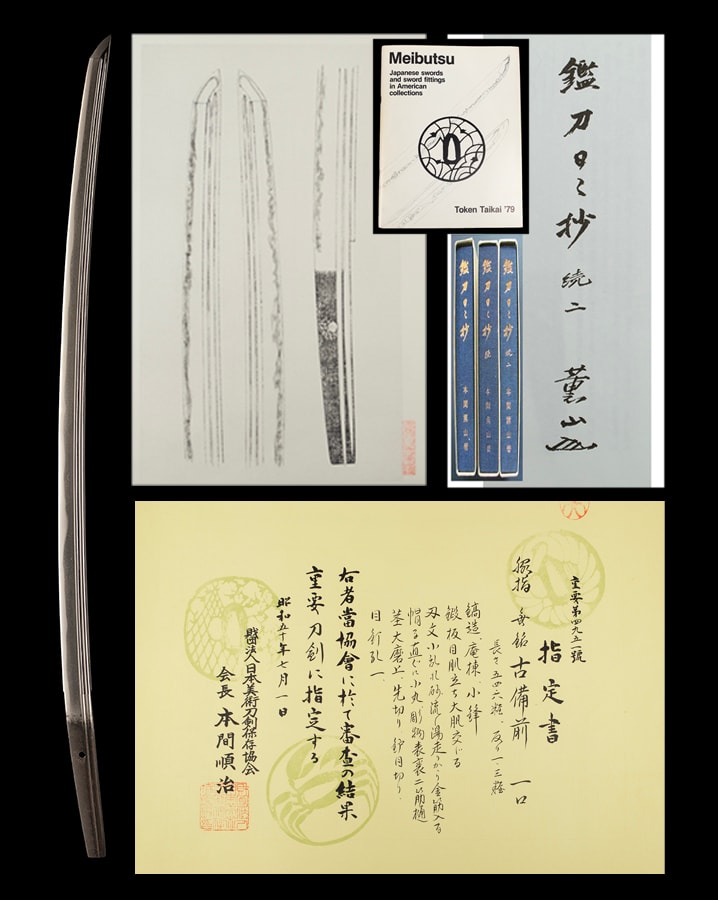 Meibutsu
Japanese swords
and sword fittings
in American
collections
Token Taikai '79
鑑刀日々抄 続二 薫山
鑑刀日々抄 続二 本間薫山著
鑑刀日々抄 続 本間薫山著
鑑刀日々抄 本間薫山著
重要第四九五一號
指定書
脇指 無銘 古備前 一口
長さ 五四・六糎、反り 一・三糎
鎬造、庵棟、小鋒
鍛 板目肌立ち大肌交じる
刃文 小乱れ砂流し湯走かゝり金筋入る
帽子 直ぐに小丸 彫物 表裏二筋樋
茎 大磨上、先切り、鑢目切り、
目釘孔一、
右者當協會に於て審査の結果
重要刀剣に指定する
昭和五十年七月一日
財團法人日本美術刀剣保存協会
会長 本間順治